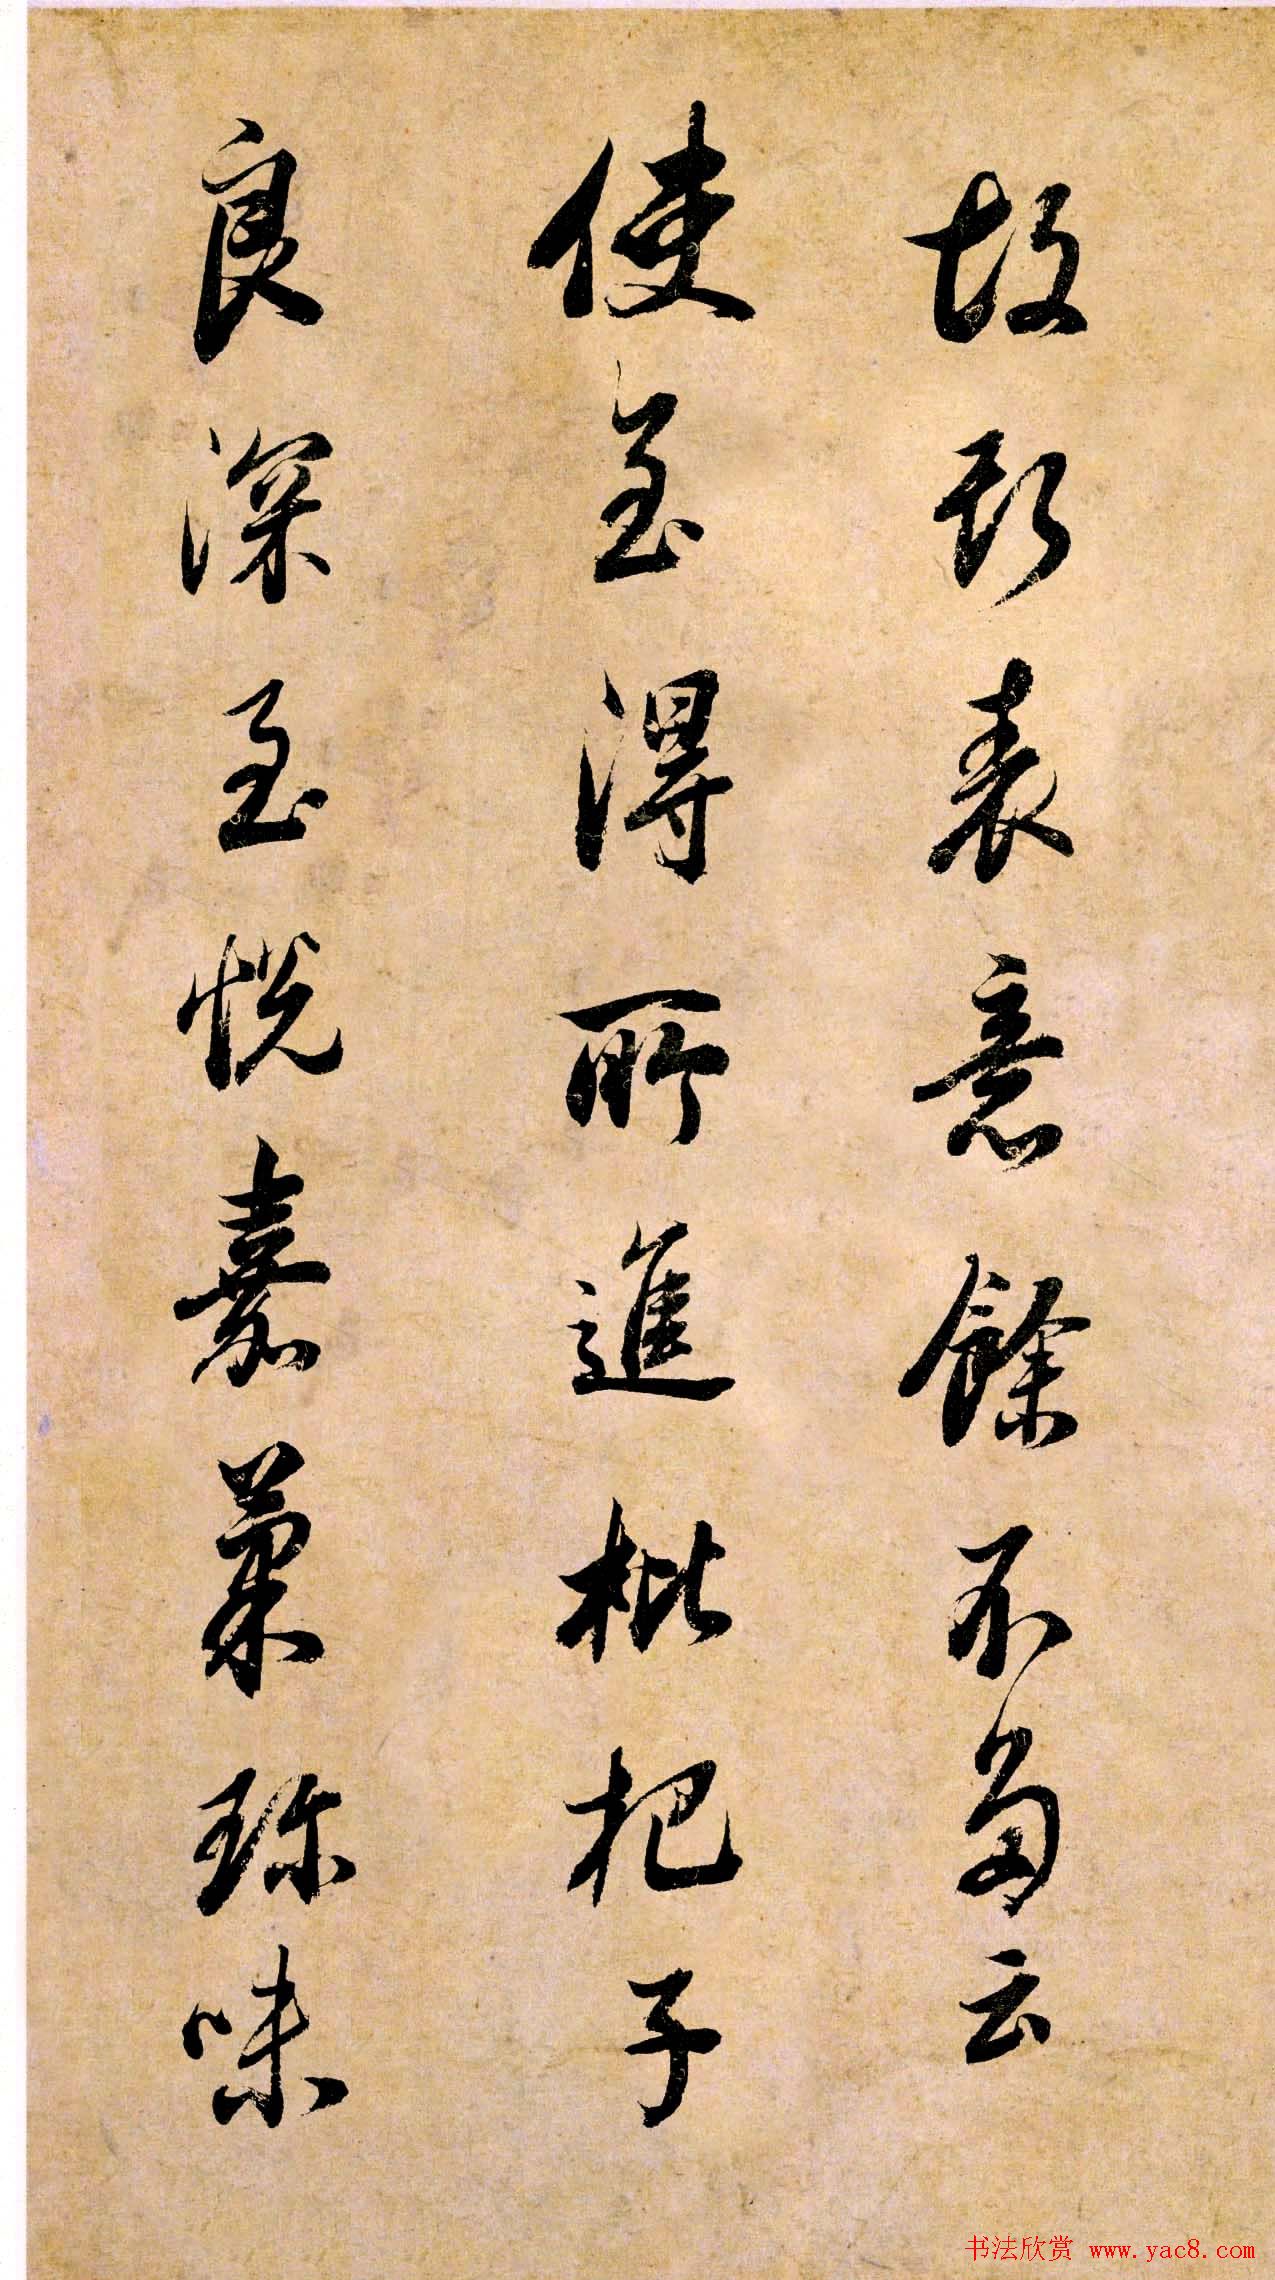 故玩表意餘不多云
使至得所進枇杷子
良深至悅嘉菓珎味
书法欣赏 www.yac8.com